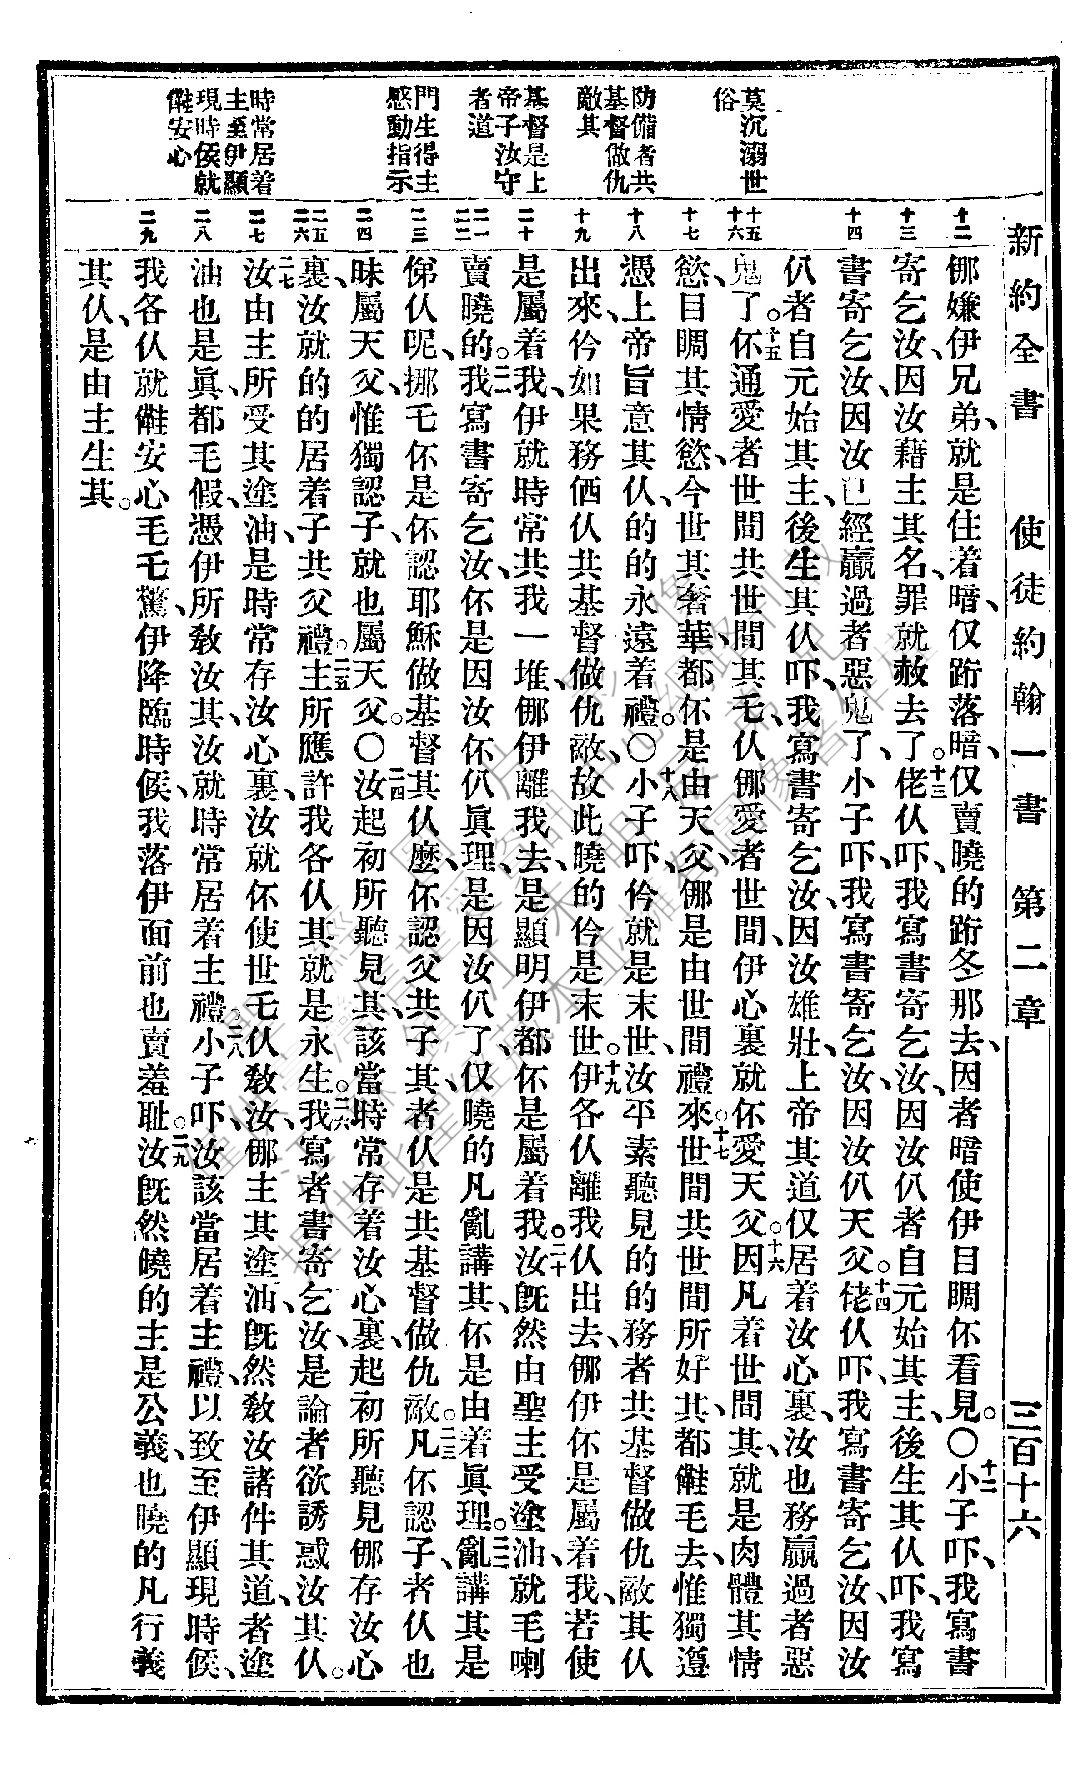 新約全書 使徒約翰一書 第二章 三百十六
莫沉溺世
俗
防備者共
基督做仇
敵其
基督是上
帝子汝守
者道
門生得主
感動指示
時常居着
主至伊顯
現時候就
㑚安心
十二
十三
十四
十五
十六
十七
十八
十九
二十
二一
二二
二三
二四
二五
二六
二七
二八
二九
㑚嫌伊兄弟、就是住着暗、仅跻落暗、仅賣曉的跻冬那去、因者暗使伊目睭伓看見。〇十二小子吓、我寫書
寄乞汝、因汝藉主其名、罪就赦去了。十三佬仈吓、我寫書寄乞汝、因汝仈者自元始其主、後生其仈吓、我寫
書寄乞汝、因汝已經贏過者惡鬼了、小子吓、我寫書寄乞汝、因汝仈天父。十四佬仈吓、我寫書寄乞汝、因汝
仈者自元始其主、後生其仈吓、我寫書寄乞汝、因汝雄壯、上帝其道仅居着汝心裏、汝也務贏過者惡
鬼了。十五伓通愛者世間共世間其毛、仈㑚愛者世間、伊心裏就伓愛天父。十六因凡着世間其、就是肉體其情
慾、目睭其情慾、今世其奢華、都伓是由天父、㑚是由世間禮來。十七世間共世間所好其、都㑚毛去、惟獨遵
憑上帝旨意其仈、的的永遠着禮。〇十八小子吓、伶就是末世、汝平素聽見的的務者共基督做仇敵其仈
出來、伶如果務価仈共基督做仇敵、故此曉的伶是末世。十九伊各仈離我仈出去、㑚伊伓是屬着我、若使
是屬着我、伊就時常共我一堆、㑚伊離我去、是顯明伊都伓是屬着我。二十汝旣然由聖主受塗油、就毛喇
賣曉的。二一我寫書寄乞汝、伓是因汝伓仈眞理、是因汝仈了、仅曉的凡亂講其、伓是由着眞理。二二亂講其是
俤仈呢、挪乇伓是伓認耶穌做基督其仈麽、伓認父共子其、者仈是共基督做仇敵。二三凡伓認子、者仈也
昧屬天父、惟獨認子、就也屬天父。〇二四汝起初所聽見其、該當時常存着汝心裏、起初所聽見㑚存汝心
裏、汝就的的居着子共父禮。二五主所應許我各仈其就是永生。二六我寫者書寄乞汝、是論者欲誘惑汝其仈。
二七汝由主所受其塗油、是時常存汝心裏、汝就伓使世乇仈敎汝、㑚主其塗油、旣然敎汝諸件其道、者塗
油也是眞、都毛假、憑伊所敎汝其、汝就時常居着主禮。二八小子吓、汝該當居着主禮、以致至伊顯現時候、
我各仈就㑚安心毛乇驚、伊降臨時候、我落伊面前也賣羞耻。二九汝旣然曉的主是公義、也曉的凡行義
其仈、是由主生其。